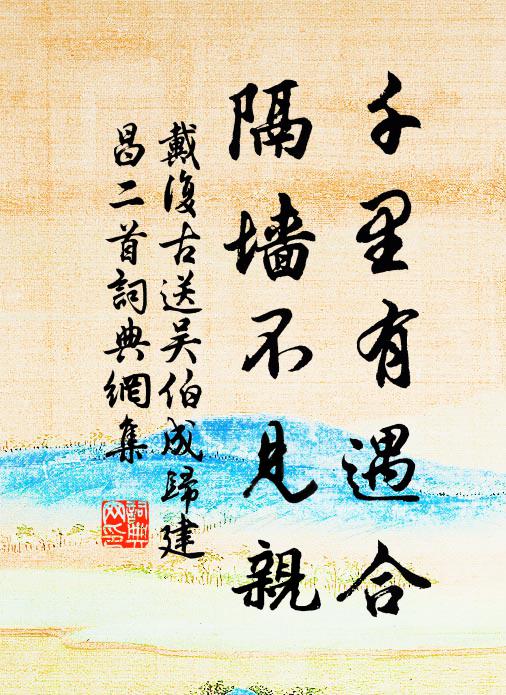 千里有遇合
隔墙不見親
戴復古送吴伯成歸建
昌二首詞典網集
詞典
网印